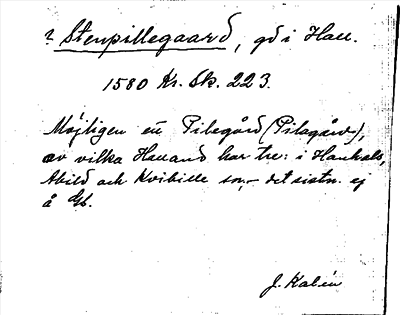 ? Stenpillegaard, gd i Hall.
1580 Kr. Sk. 223.
Möjligen en Pilegård (Pilagård),
av vilka Halland har tre: i Hanhals,
Abild och Kvibille sn, – det sistn. ej
å Gk.
J. Kalén